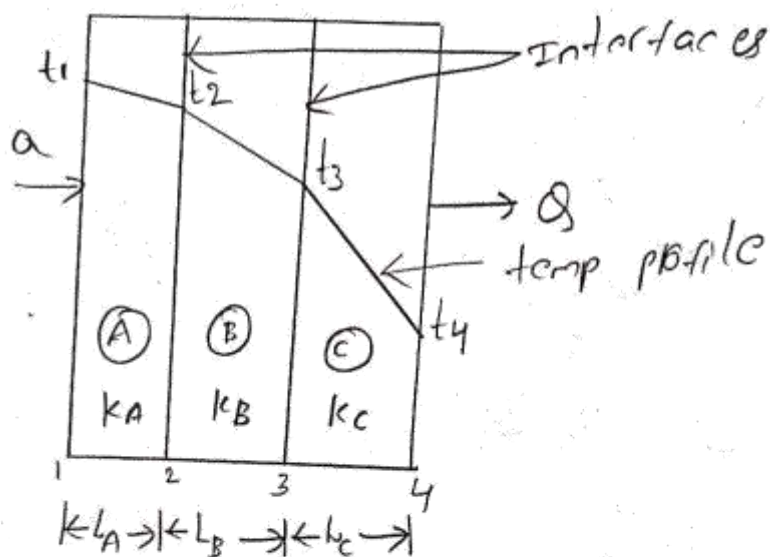 Interfaces
t1
t2
a
t3
Q
temp profile
A
B
C
t4
KA
KB
KC
1
2
3
4
LA
LB
LC